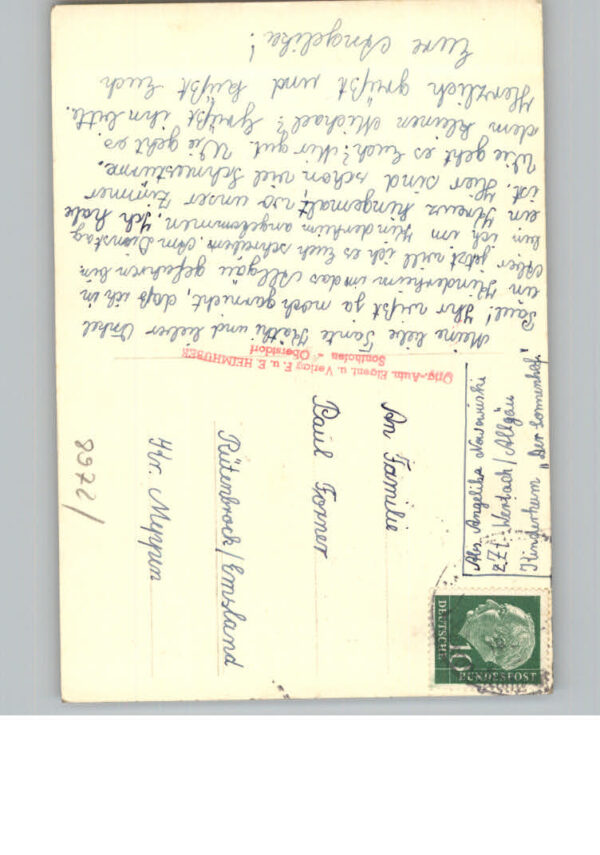 Meine liebe Tante Käthi und lieber Onkel
Paul! Ihr wißt ja noch garnicht, daß ich in
ein Kinderheim in das Allgäu gefahren bin
Aber jetzt will ich es Euch schreiben. Am Dienstag
bin ich im Kinderheim angekommen. Ich habe
ein Kreuz hingemalt, wo unser Zimmer
ist. Hier sind schon viel Schneestürme.
Wie geht es Euch? Mir gut. Wie geht es
dem kleinen Michael? Grüßt ihn bitte.
Herzlich grüßt und küßt Euch
Eure Angelika!
Orig.-Aufn. Eigent. u. Verlag F. u. E. HEIMHUBER
Sonthofen - Oberstdorf
Abs. Angelika
z Zt. Wertach/Allgäu
Kinderheim „Der Sonnenhof"
An Familie
Paul Forner
Rütenbrock/Emsland
Kr. Meppen
8972/
DEUTSCHE
BUNDESPOST
10